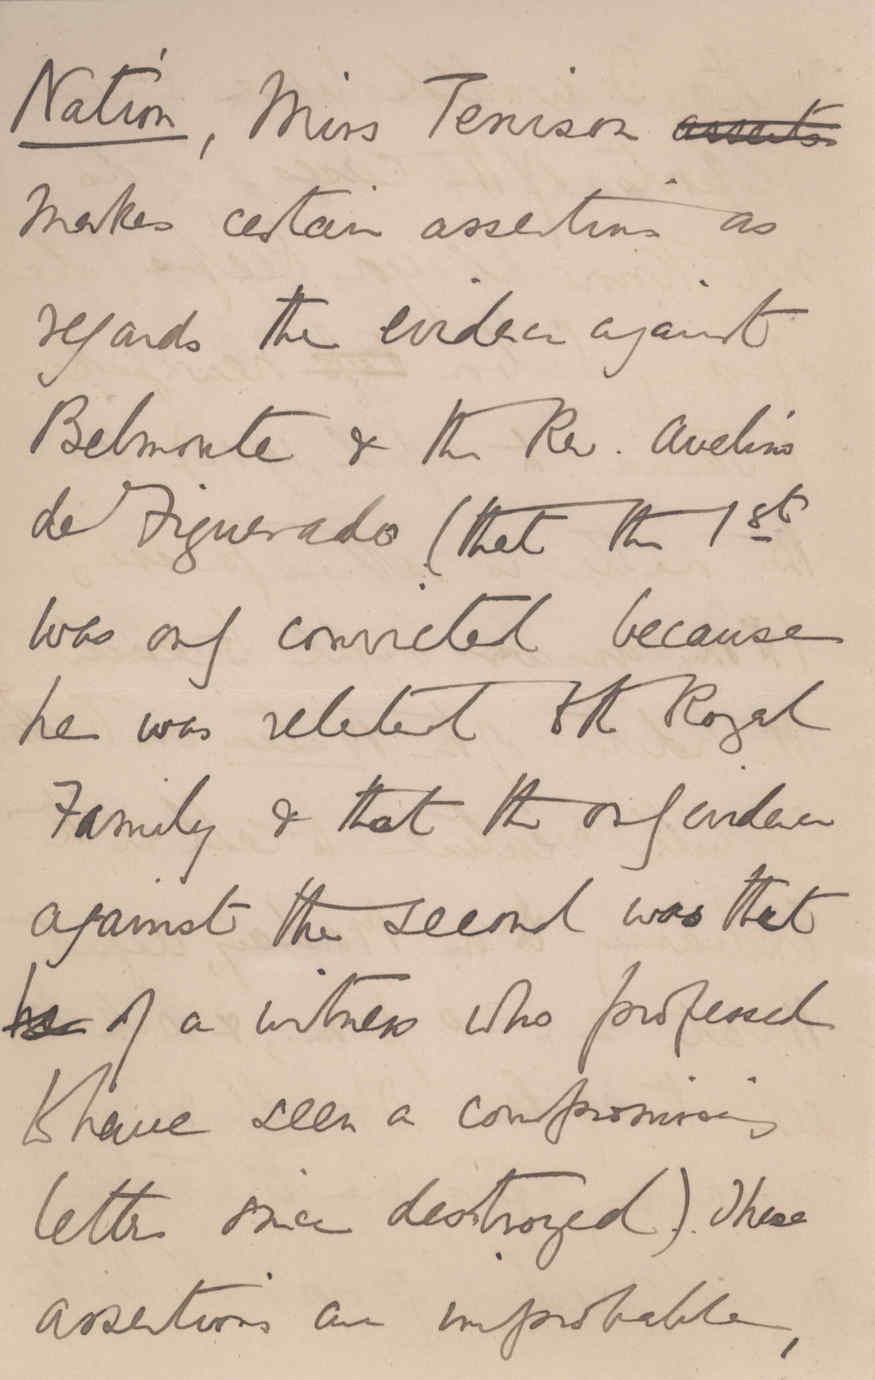 Nation, Miss Tenison asserts
makes certain assertions as
regards the evidence against
Belmonte & the Rev. Avelino
de Figuerado (that the 1st
was only convicted because
he was related to the Royal
Family & that the only evidence
against the second was that
of a witness who professed
to have seen a compromising
letter since destroyed). These
assertions are improbable,